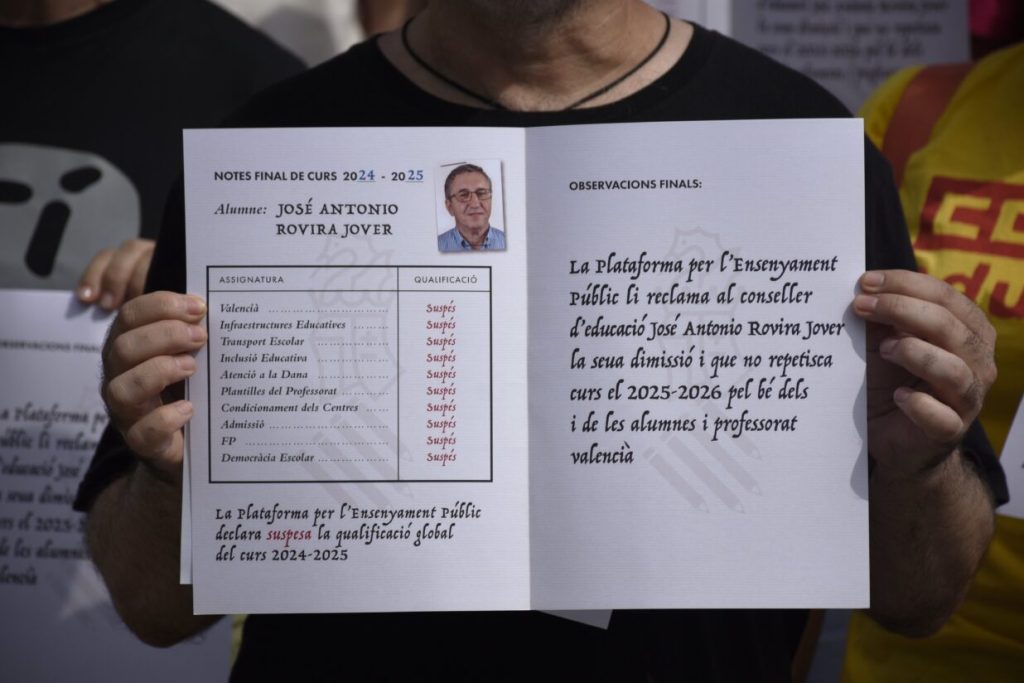 NOTES FINAL DE CURS 2024 - 2025
Alumne: JOSÉ ANTONIO
ROVIRA JOVER
ASSIGNATURA QUALIFICACIÓ
Valencià ................ Suspés
Infraestructures Educatives ......... Suspés
Transport Escolar ................ Suspés
Inclusió Educativa ................ Suspés
Atenció a la Dana ................ Suspés
Plantilles del Professorat ........... Suspés
Condicionament dels Centres ...... Suspés
Admissió ................ Suspés
FP ................ Suspés
Democràcia Escolar ................ Suspés
La Plataforma per l'Ensenyament Públic
declara suspesa la qualificació global
del curs 2024-2025
OBSERVACIONS FINALS:
La Plataforma per l'Ensenyament
Públic li reclama al conseller
d'educació José Antonio Rovira Jover
la seua dimissió i que no repetisca
curs el 2025-2026 pel bé dels
i de les alumnes i professorat
valencià